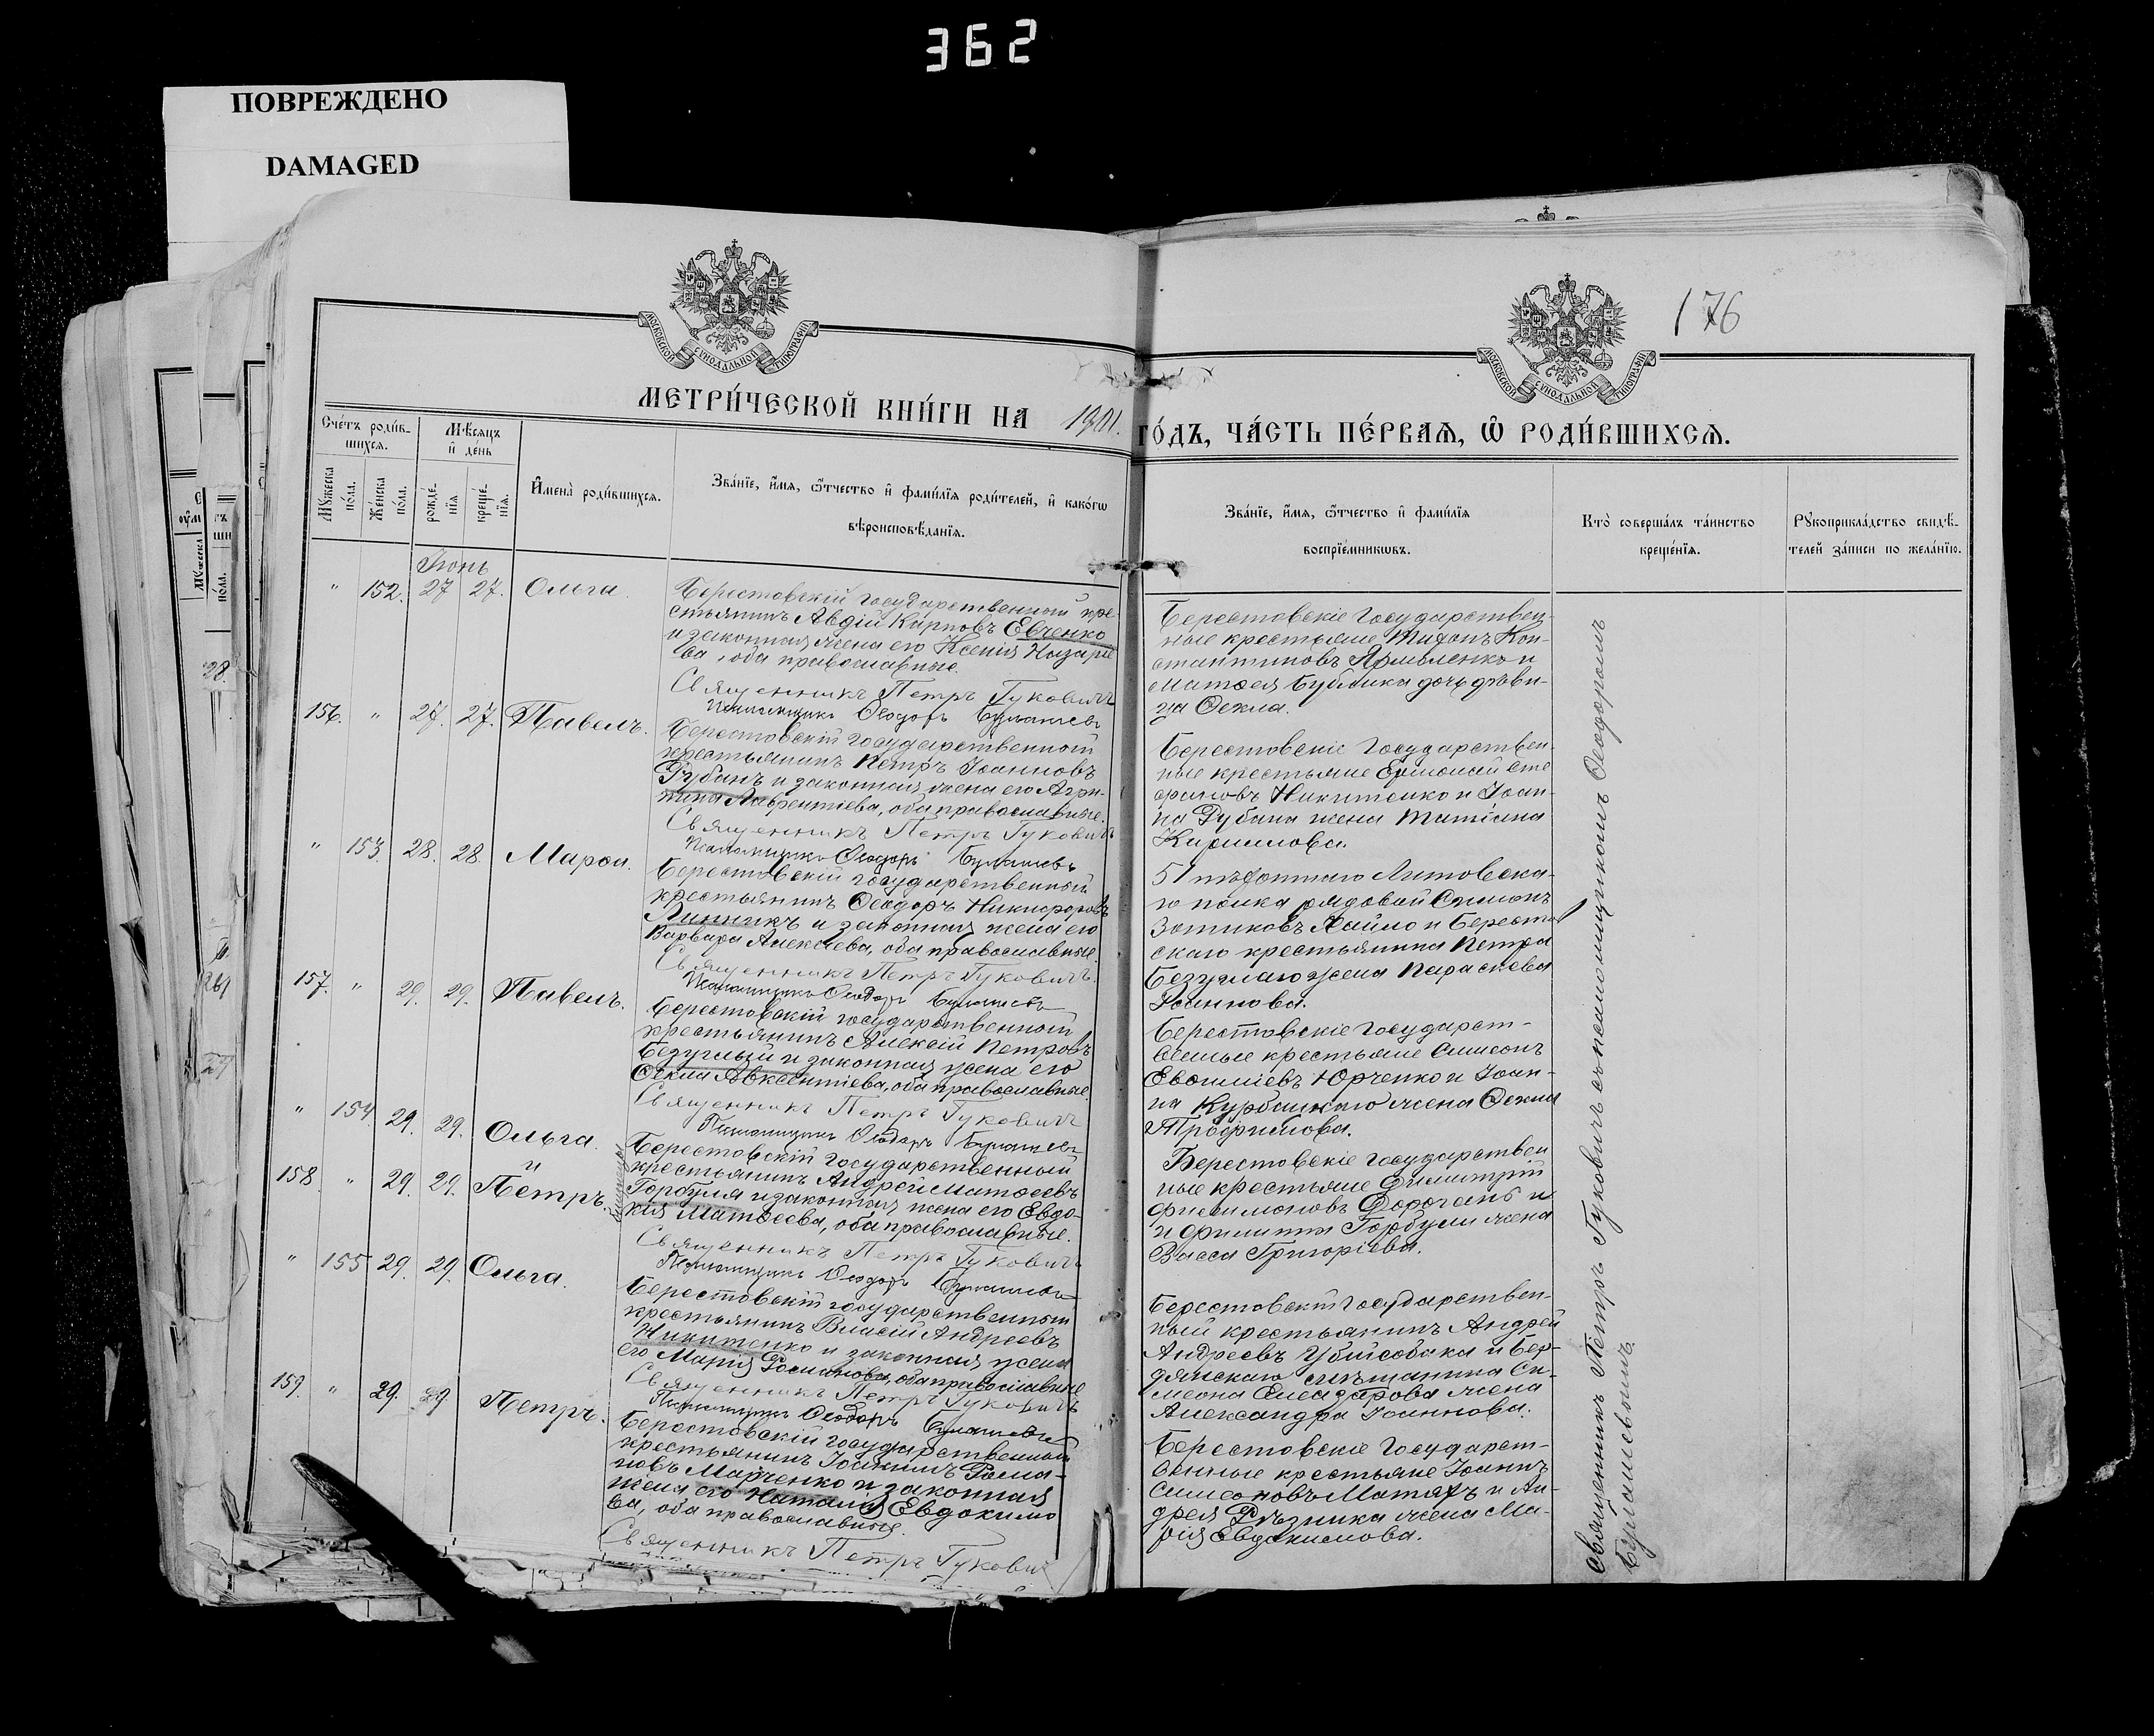 362
ПОВРЕЖДЕНО
DAMAGED
МОСКОВСКОЙ СѴНОДАЛЬНОЙ ТИПОГРАФІИ
МОСКОВСКОЙ СѴНОДАЛЬНОЙ ТИПОГРАФІИ
176
МЕТРИ́ЧЕСКОЙ КНИ́ГИ НА 1901.
ГО́ДЪ, ЧА́СТЬ ПЕ́РВАЯ, Ѽ РОДИ́ВШИХСЯ.
Сче́тъ роди́в-
шихся.
Мѣ́сяцъ
и҆ де́нь
Мꙋ́жеска
по́ла.
Же́нска
по́ла.
рожде́-
нїя
креще́-
нїя.
И҆мена̀ роди́вшихся.
Зва́нїе, и҆́мя, ѻ҆́тчество и҆ фамѝлїя роди́телей, и҆ како́гѡ
вѣроисповѣ́данїя.
Зва́нїе, и҆́мя, ѻ҆́тчество и҆ фамѝлїя
воспрїе́мниковъ.
Кто̀ соверша́лъ та́инство
креще́нїя.
Рꙋкоприкла́дство свидѣ́-
телей за́писи по жела́нїю.
Іюнь
" 152. 27 27. Ольга.
Берестовскій государственный кре-
стьянинъ Авдій Карповъ Евченко
и законная жена его Ксенія Назаріе
ва, оба православные.
Священникъ Петръ Гуковичъ
Псаломщикъ Ѳеодоръ
Берестовскіе государствен-
ные крестьяне Тихонъ Кон-
стантиновъ Ярмоленко и
Матѳея Бублика дочь дѣви-
ца Ѳекла.
156. " 27. 27. Павелъ.
Берестовскій государственный
крестьянинъ Петръ Іоанновъ
Рубанъ и законная жена его Агри-
пина Лаврентіева, оба православные.
Священникъ Петръ Гуковичъ
Псаломщикъ Ѳеодоръ
Берестовскіе государствен-
ные крестьяне Ермолай Сте
фановъ Никитенко и Іоан-
на Рубана жена Татіана
Кириллова.
" 153. 28. 28. Марѳа.
Берестовскій государственный
крестьянинъ Ѳеодоръ Никифоровъ
Линникъ и законная жена его
Варвара Алексіева, оба православные.
Священникъ Петръ Гуковичъ.
Псаломщикъ Ѳеодоръ
51 пѣхотнаго Литовска-
го полка рядовой Симеонъ
Зотиковъ и Бересто
скаго крестьянина Петра
Безуглаго жена Параскева
Іоаннова.
157. " 29. 29. Павелъ.
Берестовскій государственный
крестьянинъ Алексій Петровъ
Безуглый и законная жена его
Ѳекла Авксентіева, оба православные.
Священникъ Петръ Гуковичъ
Псаломщикъ Ѳеодоръ
Берестовскіе государст-
венные крестьяне Симеонъ
Евѳиміевъ Юрченко и Іоан-
на Курбацкаго жена Ѳекла
Трофимова.
" 154. 29. 29. Ольга.
и
158. " 29. 29. Петръ.
близнецы
Берестовскій государственный
крестьянинъ Андрей Матѳеевъ
Горбуля и законная жена его Евдо-
кія Матѳеева, оба православные.
Священникъ Петръ Гуковичъ
Псаломщикъ Ѳеодоръ
Берестовскіе государствен
ные крестьяне Димитрій
Филимоновъ и
и Филиппа Горбули жена
Васса Григоріева.
" 155 29. 29. Ольга.
Берестовскій государственный
крестьянинъ Власій Андреевъ
Никитенко и законная жена
его Марія Романова, оба православные
Священникъ Петръ Гуковичъ
Псаломщикъ Ѳеодоръ
Берестовскій государствен-
ный крестьянинъ Андрей
Андреевъ Убийсобака и Бер-
дянскаго мѣщанина Си-
меона жена
Александра Іоаннова.
159. " 29. 29. Петръ.
Берестовскій государственный
крестьянинъ Іоакимъ Рома-
новъ Марченко и законная
жена его Наталія Евдокимо
ва, оба православные.
Священникъ Петръ Гукович
Берестовскіе государст-
венные крестьяне Іоаннъ
Симеоновъ и Ан-
дрея Рѣзника жена Ма-
рія Евдокимова.
Священникъ Петръ Гуковичъ съ псаломщикомъ Ѳеодоромъ